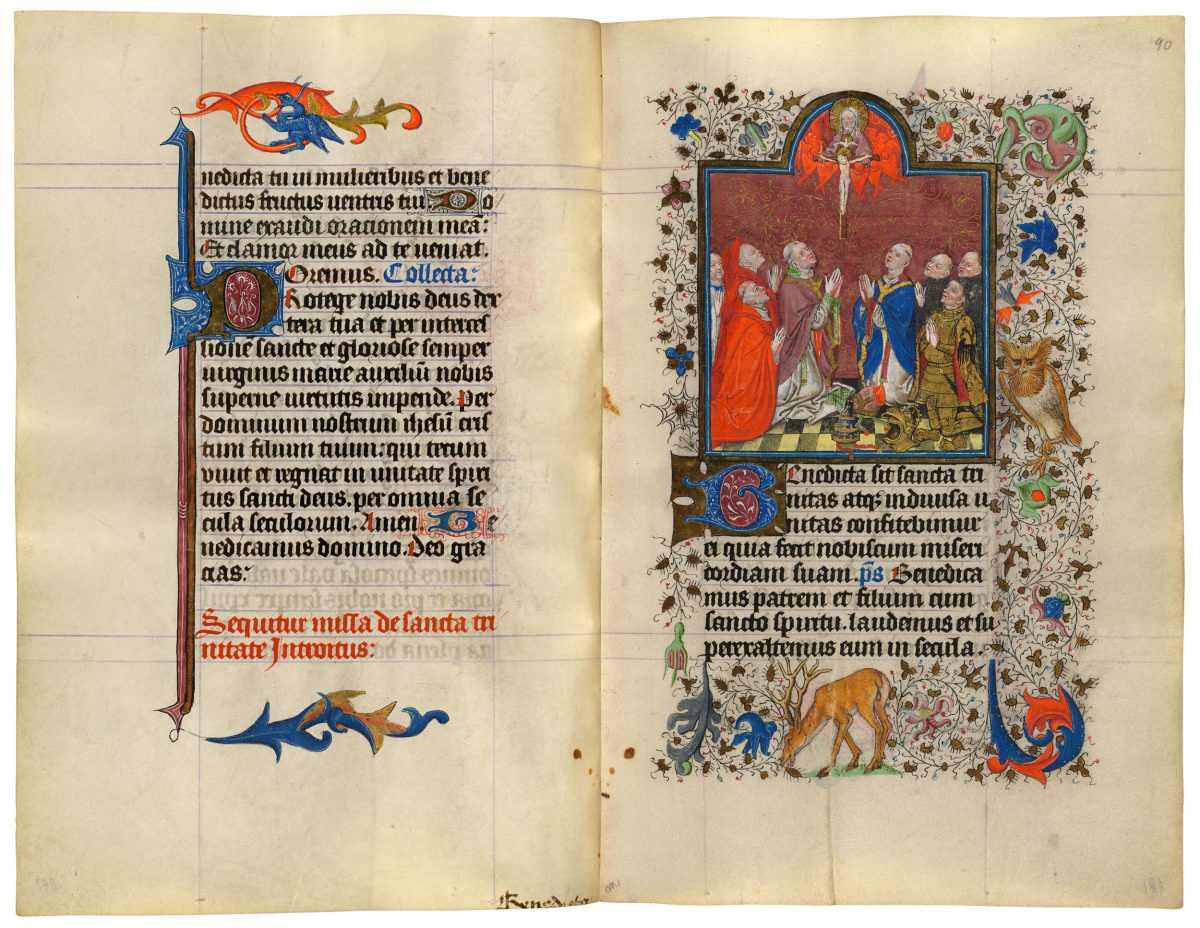 nedicta tu in mulieribus et bene
dictus fructus ventris tui Do
mine exaudi orationem meā:
Et clamor meus ad te veniat.
Oremus. Collecta:
Rotege nobis deus dex
tera tua et per interces
sionē sancte et gloriose semper
virginis marie auxiliū nobis
superne virtutis impende. Per
dominum nostrum ihesū cris
tum filium tuum: qui tecum
vivit et regnat in unitate spiri
tus sancti deus. per omnia se
cula seculorum. Amen. Be
nedicamus domino. Deo gra
cias:
Sequitur missa de sancta tri
nitate Introitus:
90
Benedicta sit sancta tri
nitas atq; indivisa u
nitas confitebimur
ei quia fecit nobiscum miseri
cordiam suam. p̄s Benedica
mus patrem et filium cum
sancto spiritu. laudemus et su
perexaltemus eum in secula.
191